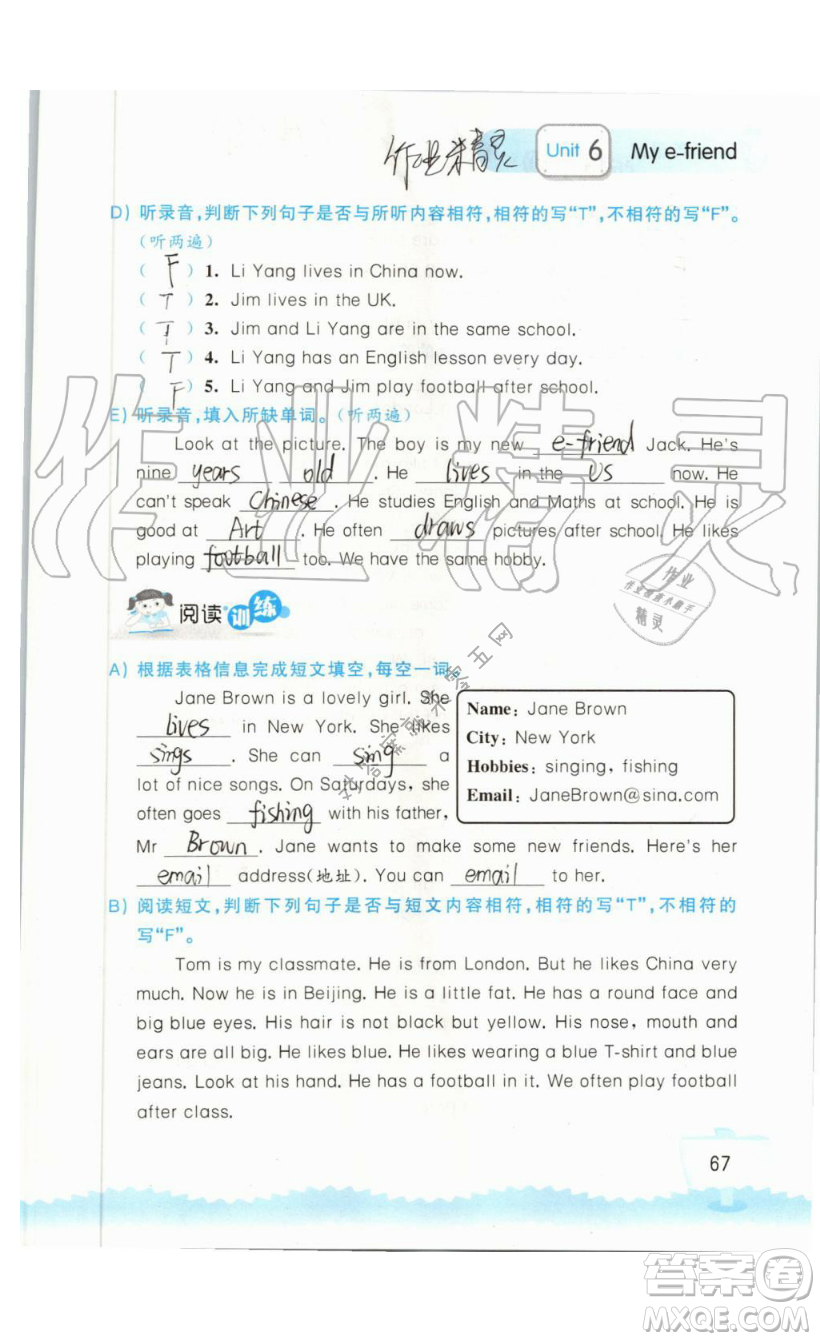 作业精灵 Unit 6 My e-friend
D) 听录音,判断下列句子是否与所听内容相符,相符的写“T”,不相符的写“F”。
(听两遍)
( F ) 1. Li Yang lives in China now.
( T ) 2. Jim lives in the UK.
( T ) 3. Jim and Li Yang are in the same school.
( T ) 4. Li Yang has an English lesson every day.
( F ) 5. Li Yang and Jim play football after school.
E) 听录音,填入所缺单词。(听两遍)
Look at the picture. The boy is my new e-friend Jack. He's
nine years old . He lives in the US now. He
can't speak Chinese . He studies English and Maths at school. He is
good at Art . He often draws pictures after school. He likes
playing football too. We have the same hobby.
阅读训练
A) 根据表格信息完成短文填空,每空一词。
Jane Brown is a lovely girl. She
lives in New York. She likes
sings . She can sing a
lot of nice songs. On Saturdays, she
often goes fishing with his father,
Mr Brown . Jane wants to make some new friends. Here's her
email address(地址). You can email to her.
Name: Jane Brown
City: New York
Hobbies: singing, fishing
Email: JaneBrown@sina.com
B) 阅读短文,判断下列句子是否与短文内容相符,相符的写“T”,不相符的
写“F”。
Tom is my classmate. He is from London. But he likes China very
much. Now he is in Beijing. He is a little fat. He has a round face and
big blue eyes. His hair is not black but yellow. His nose, mouth and
ears are all big. He likes blue. He likes wearing a blue T-shirt and blue
jeans. Look at his hand. He has a football in it. We often play football
after class.
67
作业精灵
作业
精灵
答案卷
MXQE.COM